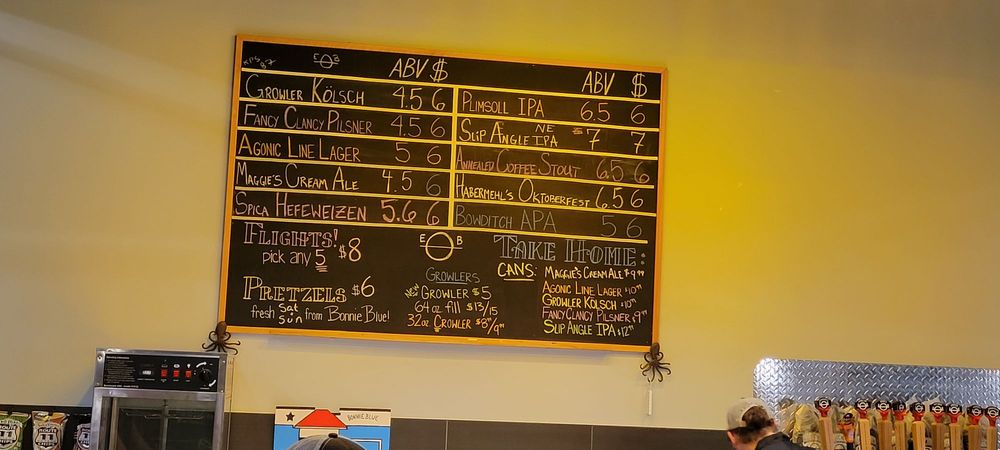 EOB ABV $
GROWLER KÖLSCH 4.5 6
FANCY CLANCY PILSNER 4.5 6
AGONIC LINE LAGER 5 6
MAGGIE'S CREAM ALE 4.5 6
SPICA HEFEWEIZEN 5.6 6
ABV $
PLIMSOLL IPA 6.5 6
SLIP ANGLE NE IPA 7 7
ANNEALED COFFEE STOUT 6.5 6
HABERMEHL'S OKTOBERFEST 6.5 6
BOWDITCH APA 5 6
FLIGHTS!
pick any 5 $8
PRETZELS $6
fresh Sat Sun from Bonnie Blue!
E O B
GROWLERS
NEW GROWLER $5
64 oz fill $13/15
32 oz CROWLER $8/9
TAKE HOME:
CANS: MAGGIE'S CREAM ALE $9.99
AGONIC LINE LAGER $10
GROWLER KÖLSCH $10
FANCY CLANCY PILSNER $9
SLIP ANGLE IPA $12
BONNIE BLUE
ROUTE 11 CHIPS